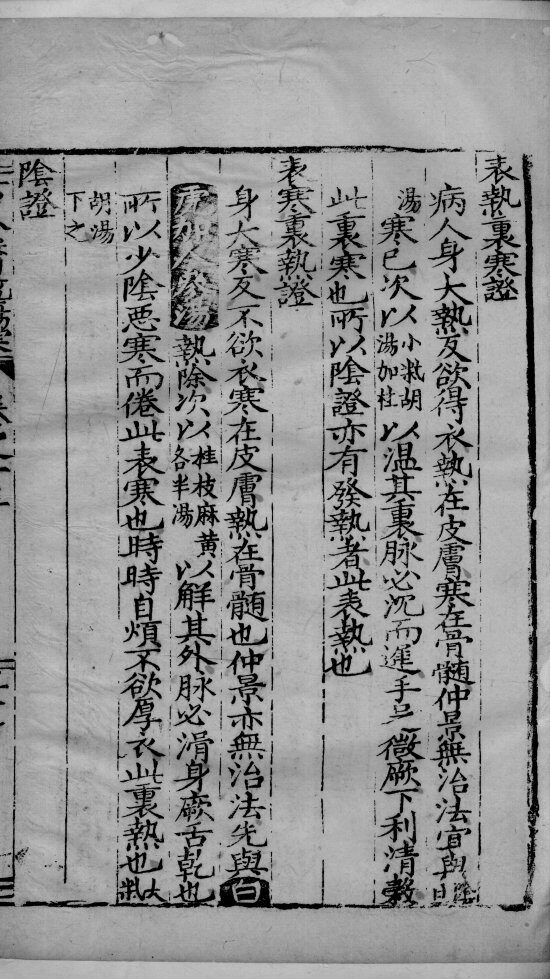 表熱裏寒證
病人身大熱反欲得衣熱在皮膚寒在骨髓仲景無治法宜與
湯寒已次以小柴胡湯加桂以温其裏脉必沉而遲手足微厥下利清穀
此裏寒也所以陰證亦有發熱者此表熱也
表寒裏熱證
身大寒反不欲衣寒在皮膚熱在骨髓也仲景亦無治法先與白
湯熱除次以桂枝麻黄各半湯以解其外脉必滑身厥舌乾也
所以少陰惡寒而倦此表寒也時時自煩不欲厚衣此裏熱也大柴
胡湯下之
陰證